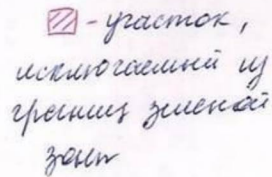 - участок,
исключаемый из
границ зеленой
зоны